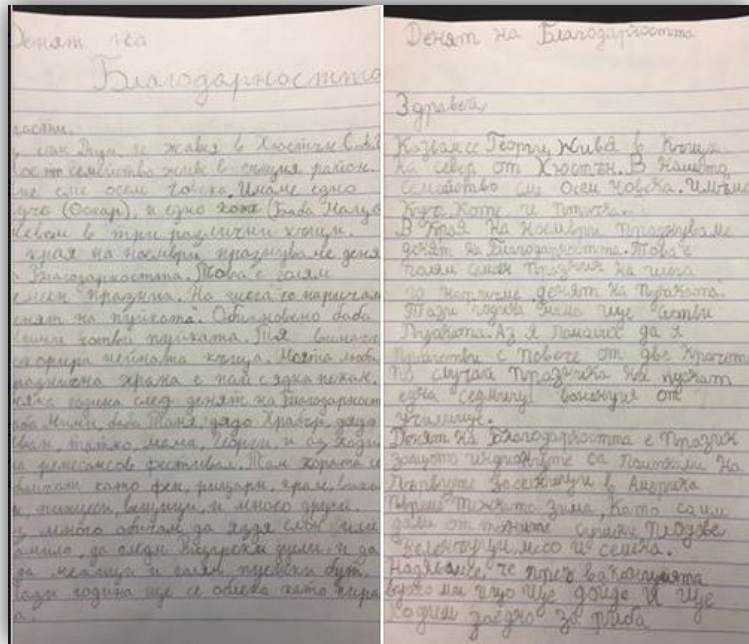 Денят на
Благодарността
и живея в Хюстън С.А.Щ
семейства живе в същия район.
ме сме осем човека. Имаме едно
(Оскар), и едно коте (Баба
в три различни къщи.
края на ноември празнуваме деня
Благодарността. Това е голям
празник. На шега го наричам
на пуйката". Обикновено баба
готви пуйката. Тя винаги
нейната къща. Моята люби
храна е пай с ядка пекан.
година след денят на Благодарност
Мими, баба Таня, дядо Храбър, дядо
татко, мама, Георги, и аз ходим
на ренесансов фестивал. Там хората се
като феи, рицари, крале,
вещици, и много други.
много обичам да яздя слон или
да гледам Рицарски дуели, и да
и голям пуешки бут.
година ще се облека като пира
Денят на Благодарността
Здравей,
Казвам се Георги, Живея в Къща
на север от Хюстън. В Нашето
Семейство сме Осем Човека. Имаме
Куче, Коте и птичка.
В Края на Ноември Празнуваме
денят на Благодарността. Това е
голям семеен Празник На шега
го наричаме „денят на Пуйката".
Тази година мама ще готви
Пуйката. Аз я Помолих да я
приготви с Повече от две Крачета
По случай Празника Ни пускат
една седмица ваканция от
училище.
Денят на Благодарността е Празник
защото индианците са Помогнали На
Първите Заселници в Америка
През тежката зима, Като са им
дали от техните Плодове
зеленчуци месо и семена.
Надявам се, че през ваканцията
ще дойде И ще
ходим заедно за риба